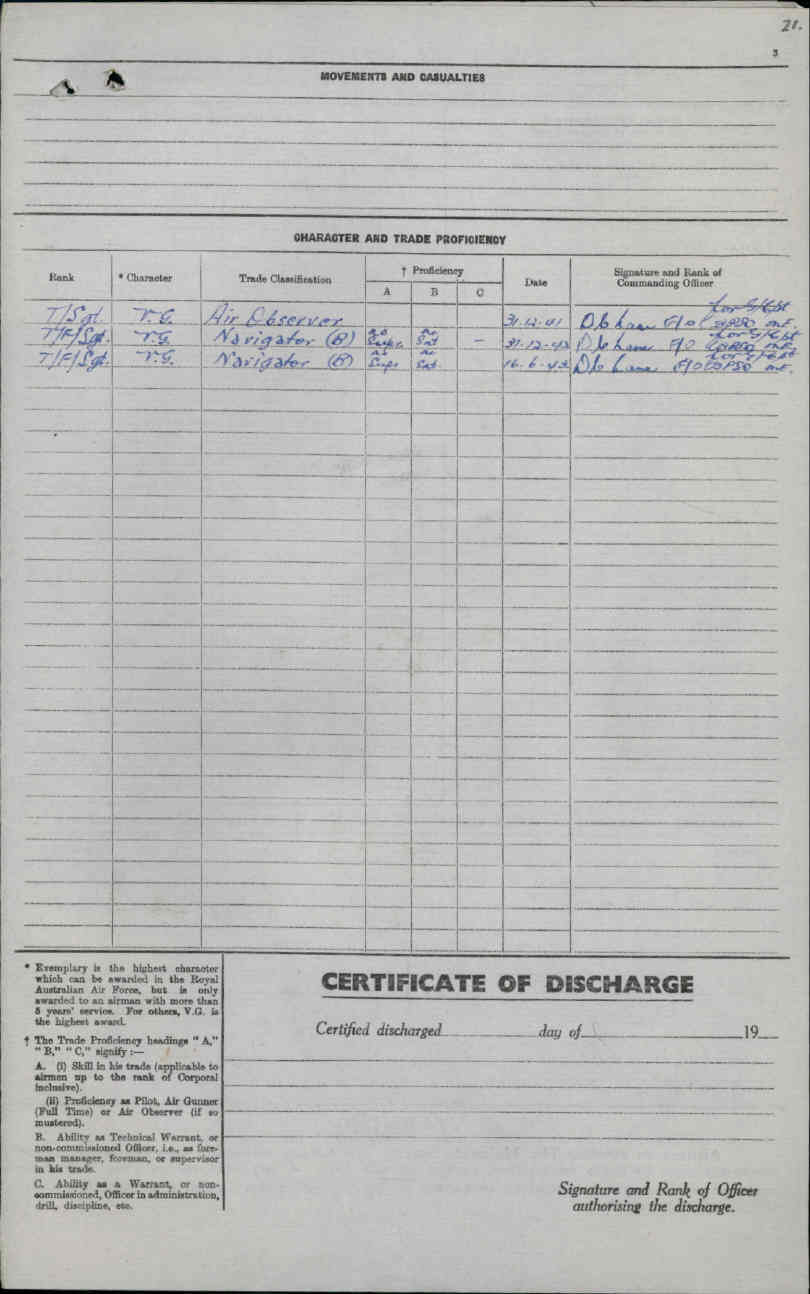 21.
3
MOVEMENTS AND CASUALTIES
CHARACTER AND TRADE PROFICIENCY
Rank * Character Trade Classification † Proficiency Date Signature and Rank of Commanding Officer
A B C
T/Sgt. V.G. Air Observer 31.12.41 F/O
T/F/Sgt. V.G. Navigator (B) Sat — 31.12.42 F/O
T/F/Sgt. V.G. Navigator (B) Sat. 16.6.43 F/O
* Exemplary is the highest character
which can be awarded in the Royal
Australian Air Force, but is only
awarded to an airman with more than
5 years' service. For others, V.G. is
the highest award.
† The Trade Proficiency headings "A,"
"B," "C," signify :—
A. (i) Skill in his trade (applicable to
airmen up to the rank of Corporal
inclusive).
(ii) Proficiency as Pilot, Air Gunner
(Full Time) or Air Observer (if so
mustered).
B. Ability as Technical Warrant, or
non-commissioned Officer, i.e., as fore-
man manager, foreman, or supervisor
in his trade.
C. Ability as a Warrant, or non-
commissioned, Officer in administration,
drill, discipline, etc.
CERTIFICATE OF DISCHARGE
Certified discharged day of 19
Signature and Rank of Officer
authorising the discharge.